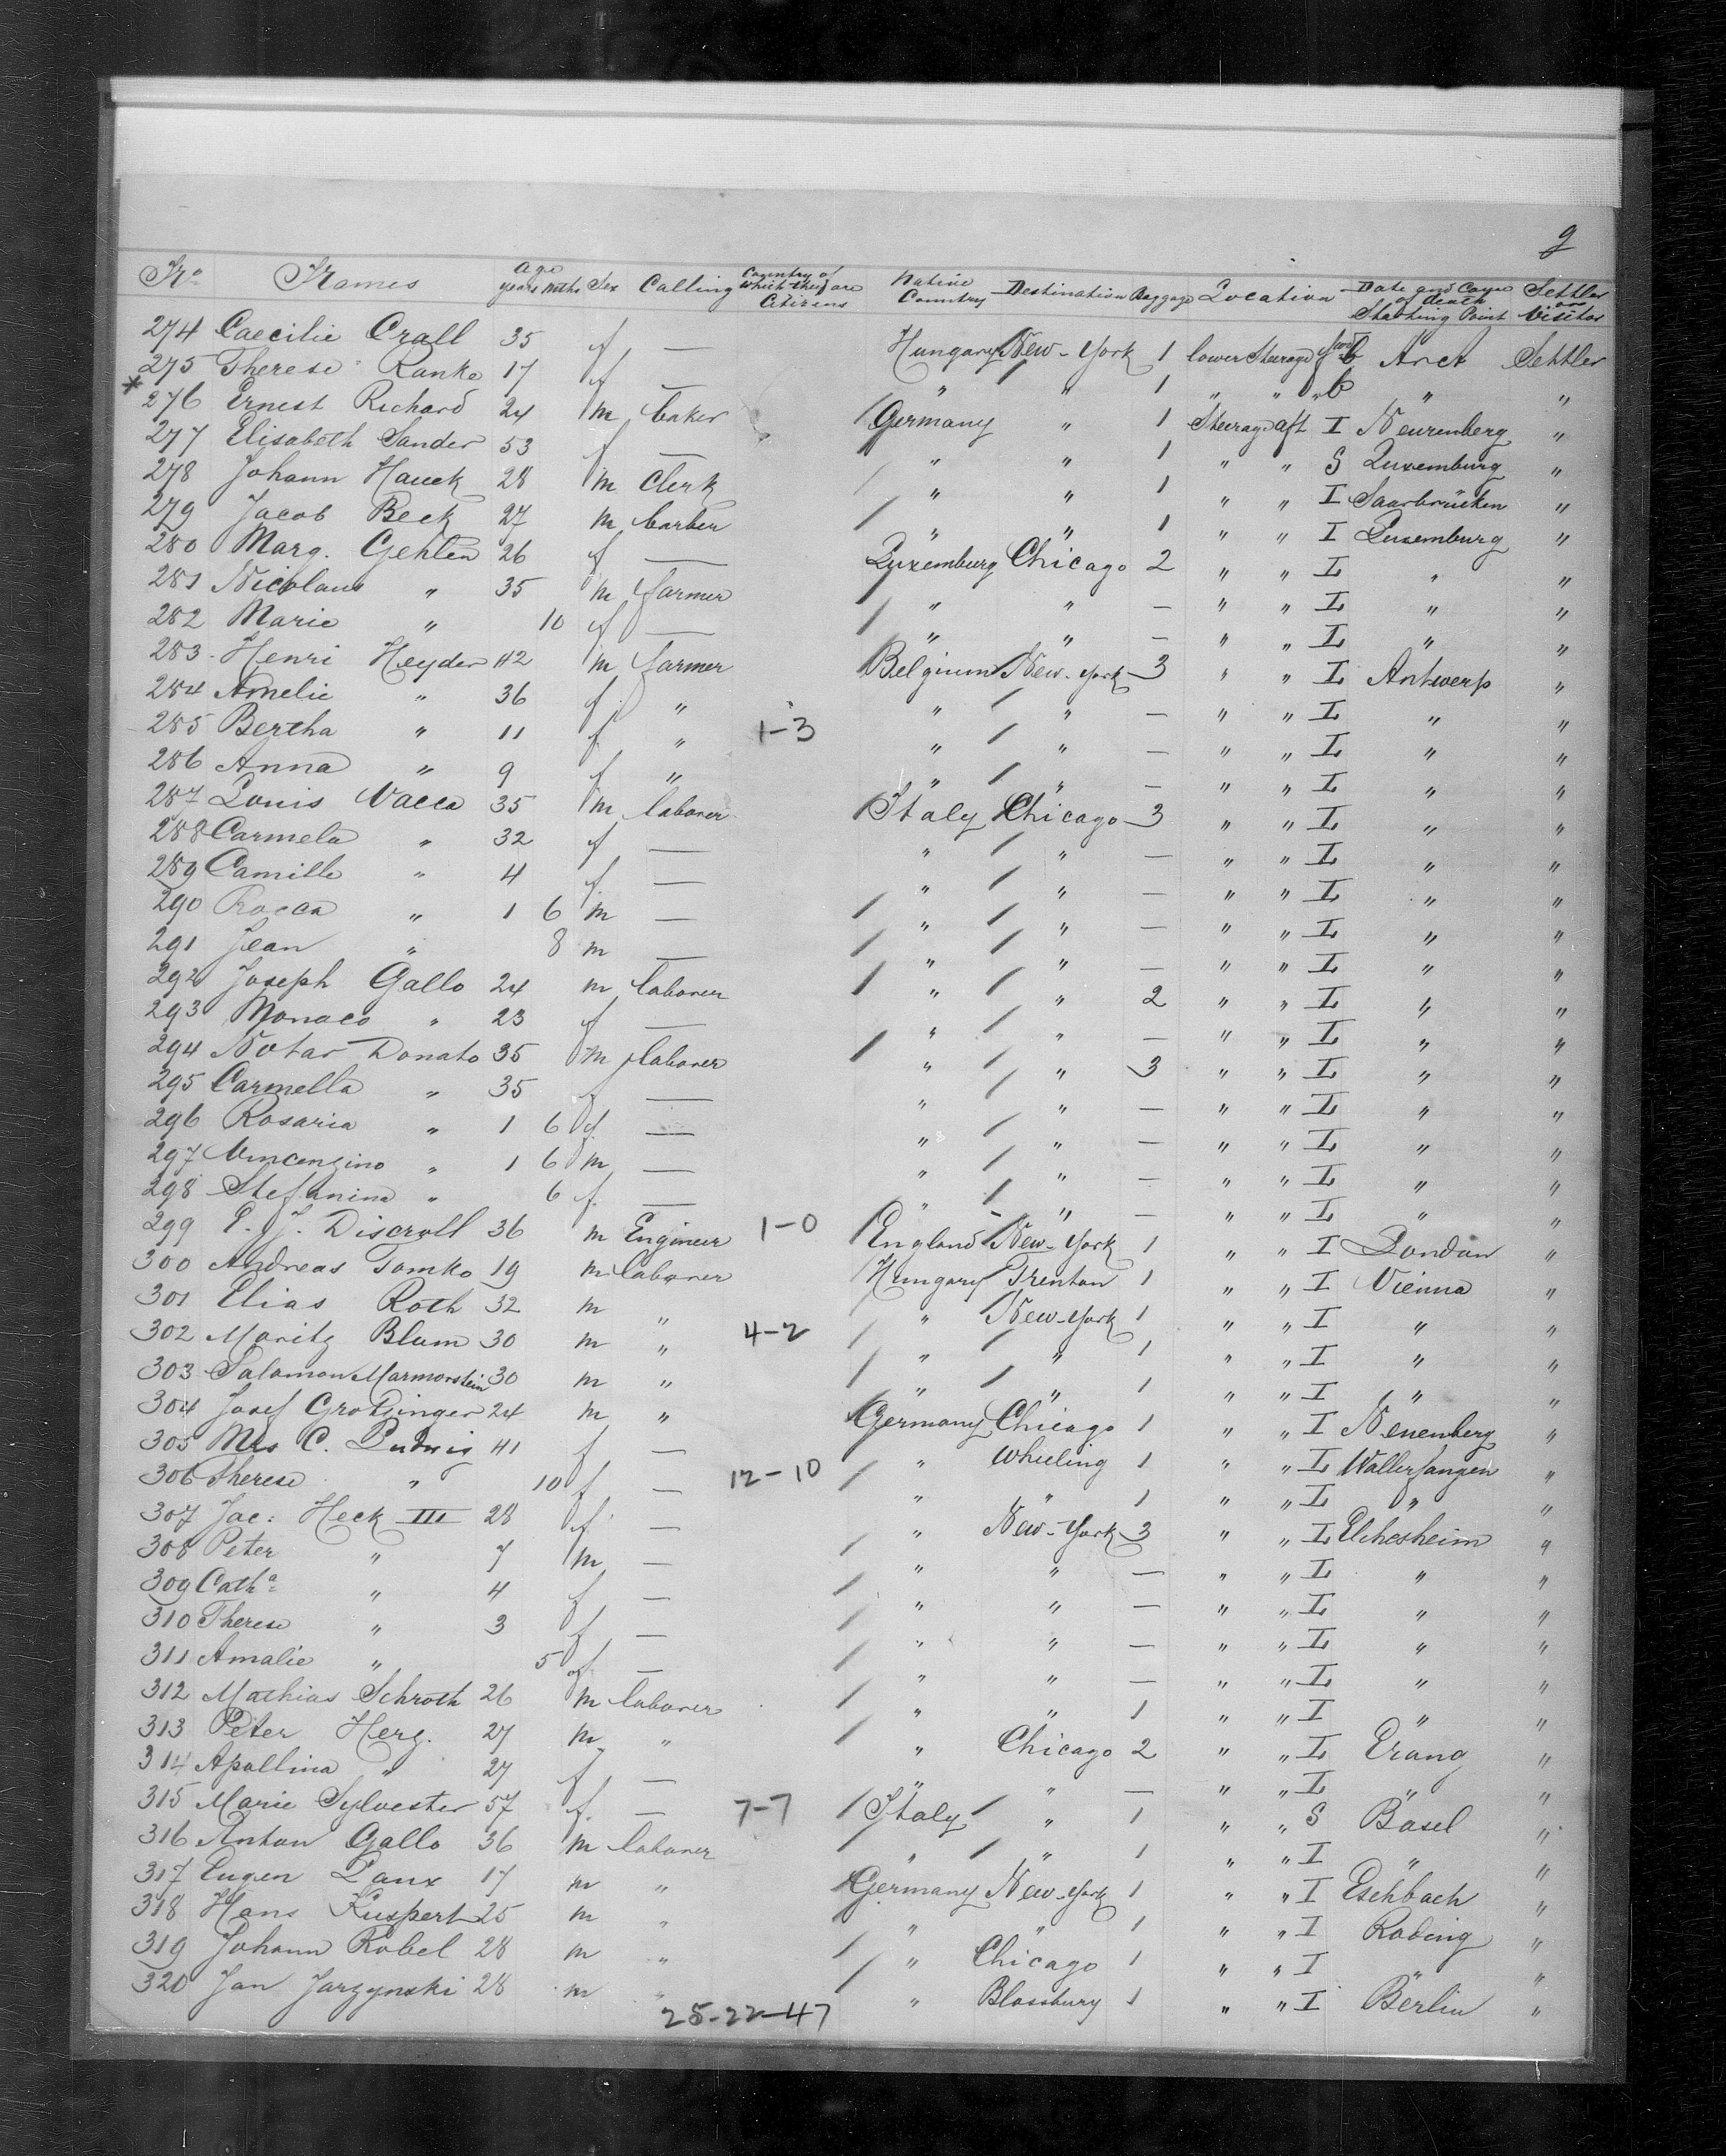 9
No. Names Age years Mths Sex Calling Country of which they are Citizens Native Country Destination Baggage Location Date and Cause of death Starting Point Settler or Visitor
274 Caecilie Crall 35 f — Hungary New-York 1 lower Steerage b Arct Settler
275 Therese Ranke 17 f — " " 1 " " b " "
* 276 Ernest Richard 24 m baker Germany " 1 Steerage aft I Neurenberg "
277 Elisabeth Sander 53 f — " " 1 " " S Luxemburg "
278 Johann Hauck 28 m Clerk " " 1 " " I Saarbrücken "
279 Jacob Beck 27 m barber " " 1 " " I Luxemburg "
280 Marg. Gehlen 26 f — Luxemburg Chicago 2 " " L " "
281 Nicolaus " 35 m farmer " " — " " L " "
282 Marie " 10 f — " " — " " L " "
283 Henri Heyder 42 m farmer Belgium New-York 3 " " L Antwerp "
284 Amelie " 36 f " " " — " " L " "
285 Bertha " 11 f " 1-3 " " — " " L " "
286 Anna " 9 f " " " — " " L " "
287 Louis Vacca 35 m laborer Italy Chicago 3 " " L " "
288 Carmela " 32 f — " " — " " L " "
289 Camille " 4 f — " " — " " L " "
290 Rocca " 1 6 m — " " — " " L " "
291 Jean " 8 m — " " — " " L " "
292 Joseph Gallo 24 m laborer " " 2 " " L " "
293 Monaco " 23 f — " " — " " L " "
294 Notar Donato 35 m laborer " " 3 " " L " "
295 Carmella " 35 f — " " — " " L " "
296 Rosaria " 1 6 f — " " — " " L " "
297 Vincenzino " 1 6 m — " " — " " L " "
298 Stefanina " 6 f — " " — " " L " "
299 P. J. Discroll 36 m Engineer 1-0 England New-York 1 " " I London "
300 Andreas Tomko 19 m laborer Hungary Trenton 1 " " I Vienna "
301 Elias Roth 32 m " " New-York 1 " " I " "
302 Moritz Blum 30 m " 4-2 " " 1 " " I " "
303 Salamon Marmorstein 30 m " " " 1 " " I " "
304 Josef Grotzinger 24 m " Germany Chicago 1 " " I Neuenberg "
305 Mrs C. Ludwig 41 f — " Wheeling 1 " " L Wallerfangen "
306 Therese " 10 f — 12-10 " " 1 " " L " "
307 Jac: Heck III 28 f — " New-York 3 " " L Elchesheim "
308 Peter " 7 m — " " — " " L " "
309 Catha " 4 f — " " — " " L " "
310 Therese " 3 f — " " — " " L " "
311 Amalie " 5 f — " " — " " L " "
312 Mathias Schroth 26 m laborer " " 1 " " I " "
313 Peter Herg. 27 m " " Chicago 2 " " L Erang "
314 Apollina " 27 f — " " — " " L " "
315 Marie Sylvester 57 f — 7-7 Italy " 1 " " S Basel "
316 Anton Gallo 36 m laborer " " 1 " " I " "
317 Eugen Laux 17 m " Germany New-York 1 " " I Eschbach "
318 Hans Kuspert 25 m " " " 1 " " I Roding "
319 Johann Robel 28 m " " Chicago 1 " " I " "
320 Jan Jarzynski 28 m " " Blossburg 1 " " I Berlin "
25-22-47